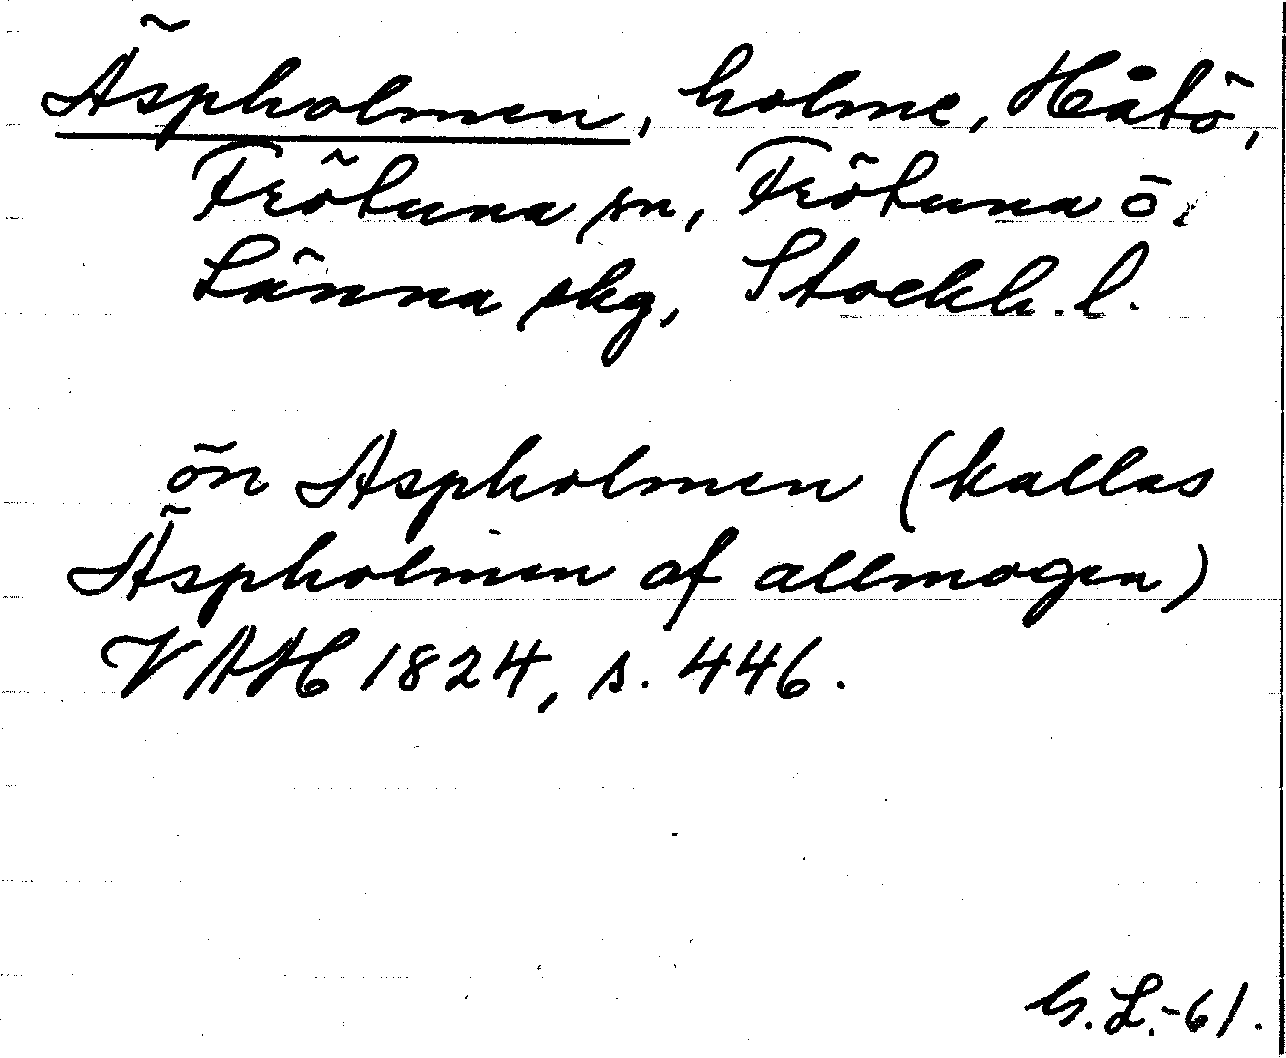 Äspholmen, holme, Håtö,
Frötuna sn, Frötuna o.
Länna skg, Stockh. l.
ön Aspholmen (kallas
Äspholmen af allmogen)
VAH 1824, s. 446.
G. L.-61.